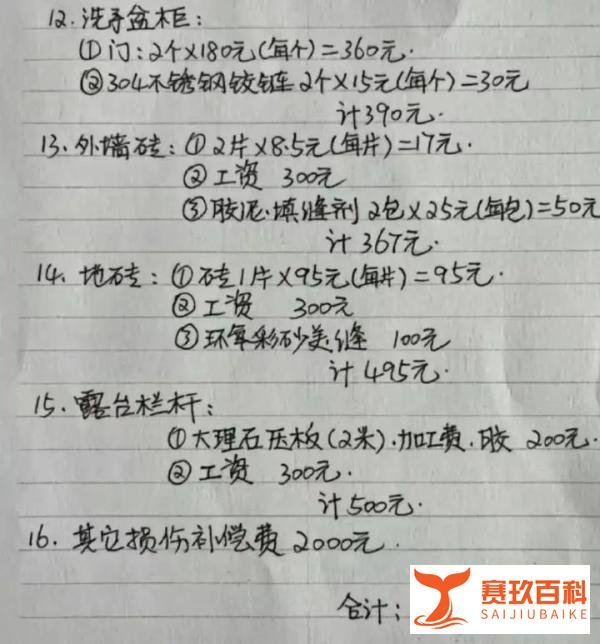 12.洗手盆木柜:
①门:2个×180元(每个)=360元.
②304不锈钢铰链2个×15元(每个)=30元
计390元.
13.外墙砖:①2片×8.5元(每片)=17元.
②工资 300元
③胶泥.填缝剂2包×25元(每包)=50元
计367元.
14.地砖:①砖1片×95元(每片)=95元.
②工资 300元
③环氧彩砂美缝 100元
计495元.
15.露台栏杆:
①大理石压板(2米).加工费.胶 200元.
②工资 300元.
计500元.
16.其它损伤补偿费2000元.
合计:
赛玖百科
SAIJIUBAIKE